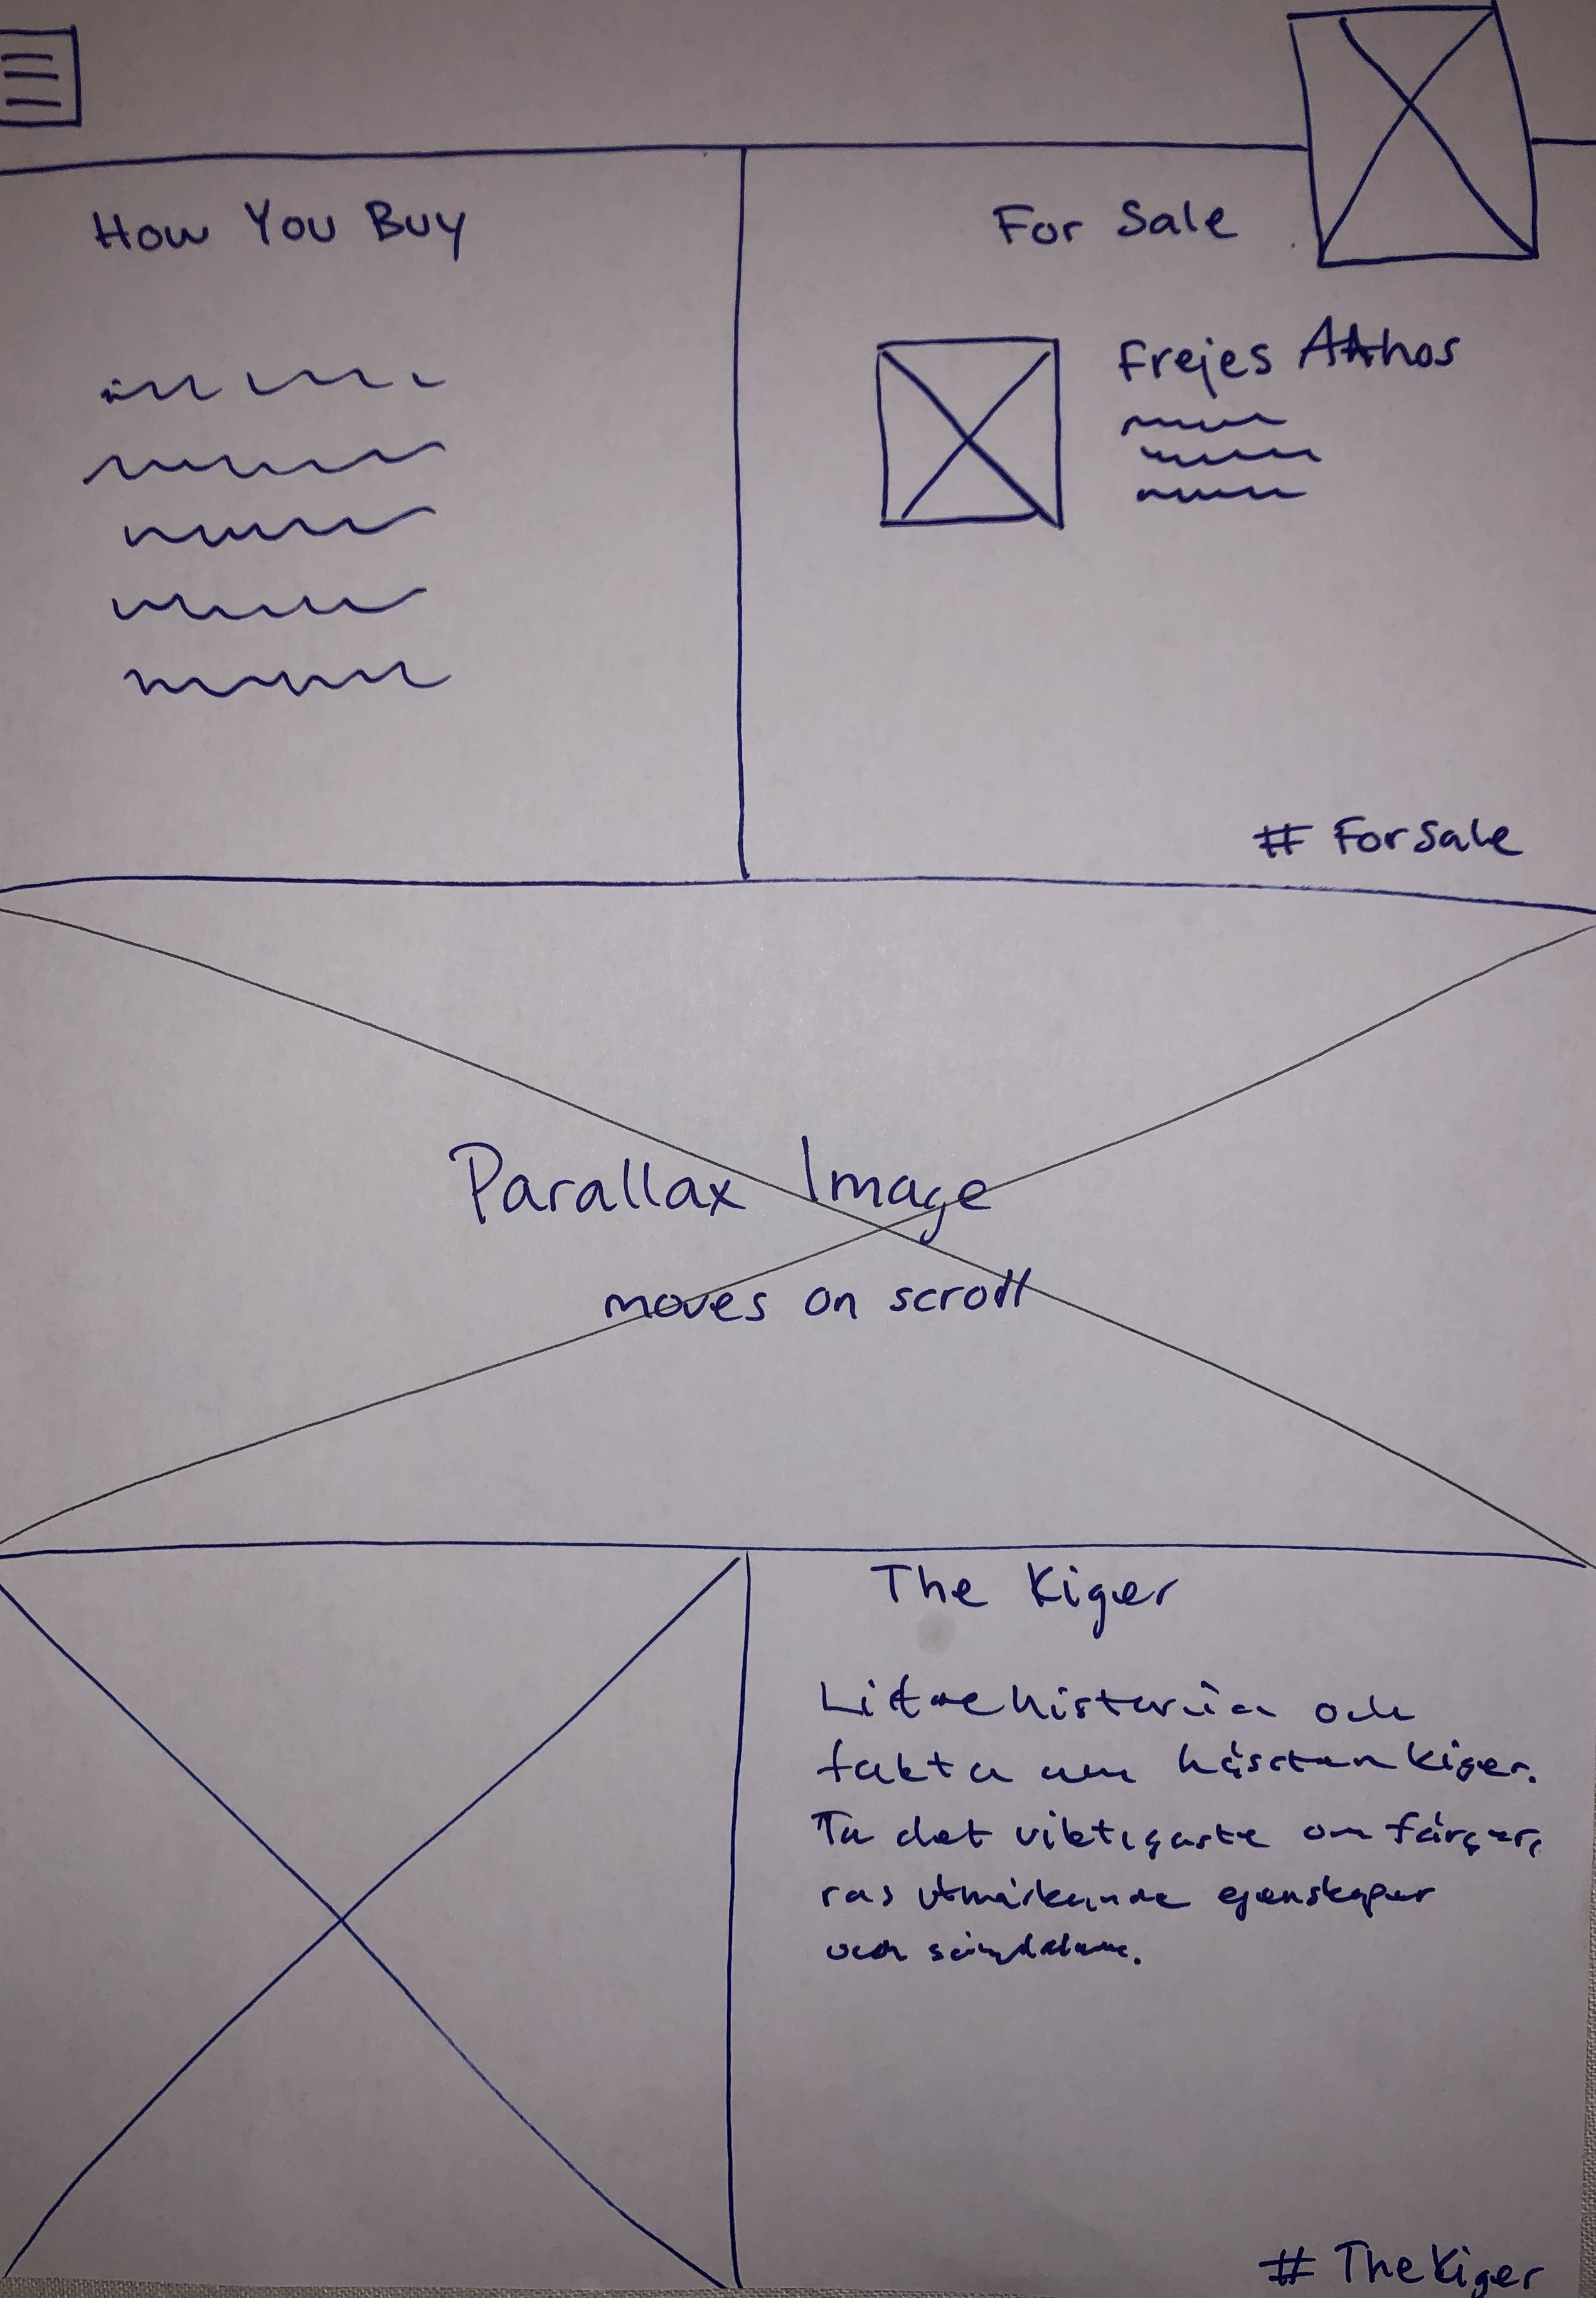 How You Buy
For Sale
Frejes Athos
# ForSale
Parallax Image
moves on scroll
The Kiger
Lite historia och
fakta om hästen kiger.
Ta det viktigaste om färger,
ras utmärkande egenskaper
och
# TheKiger